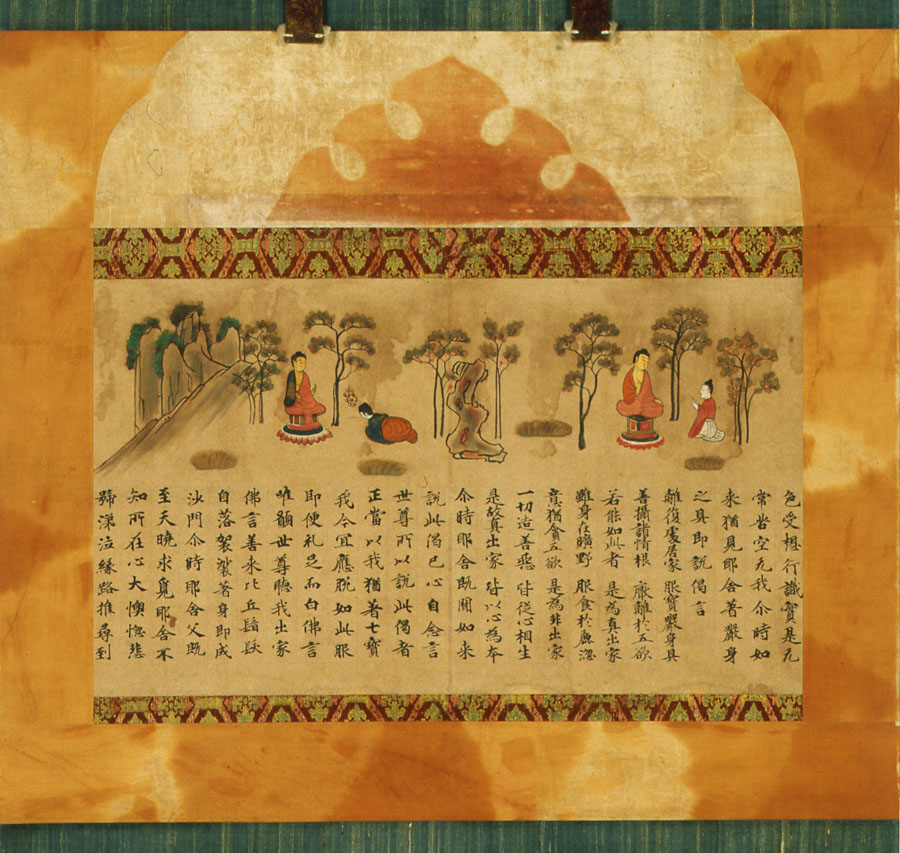 色受想行識實是无
常苦空无我尒時如
來猶見耶舍著嚴身
之具即說偈言
雖復處居家 服寶嚴身具
善攝諸情根 厭離於五欲
若能如此者 是為真出家
雖身在曠野 服食於麁澁
意猶貪五欲 是為非出家
一切造善惡 皆從心相生
是故真出家 皆以心為本
尒時耶舍既聞如來
說此偈已心自念言
世尊所以說此偈者
正當以我猶著七寶
我今宜應脫如此服
即便礼足而白佛言
唯願世尊聽我出家
佛言善來比丘鬚髮
自落袈裟著身即成
沙門尒時耶舍父既
至天曉求覓耶舍不
知所在心大懊惱悲
號涕泣緣路推尋到